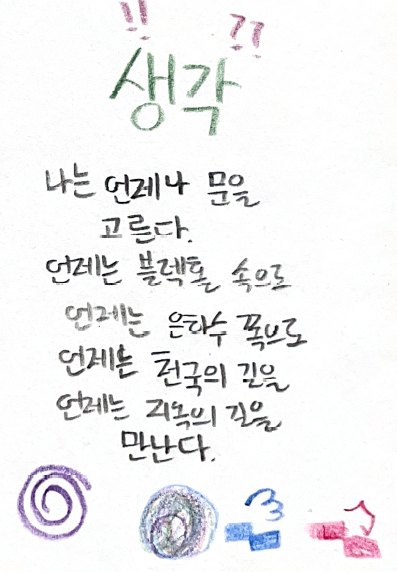 !! ??
생각
나는 언제나 문을
고른다.
언제는 블랙홀 속으로
언제는 은하수 쪽으로
언제는 천국의 길을
언제는 지옥의 길을
만난다.